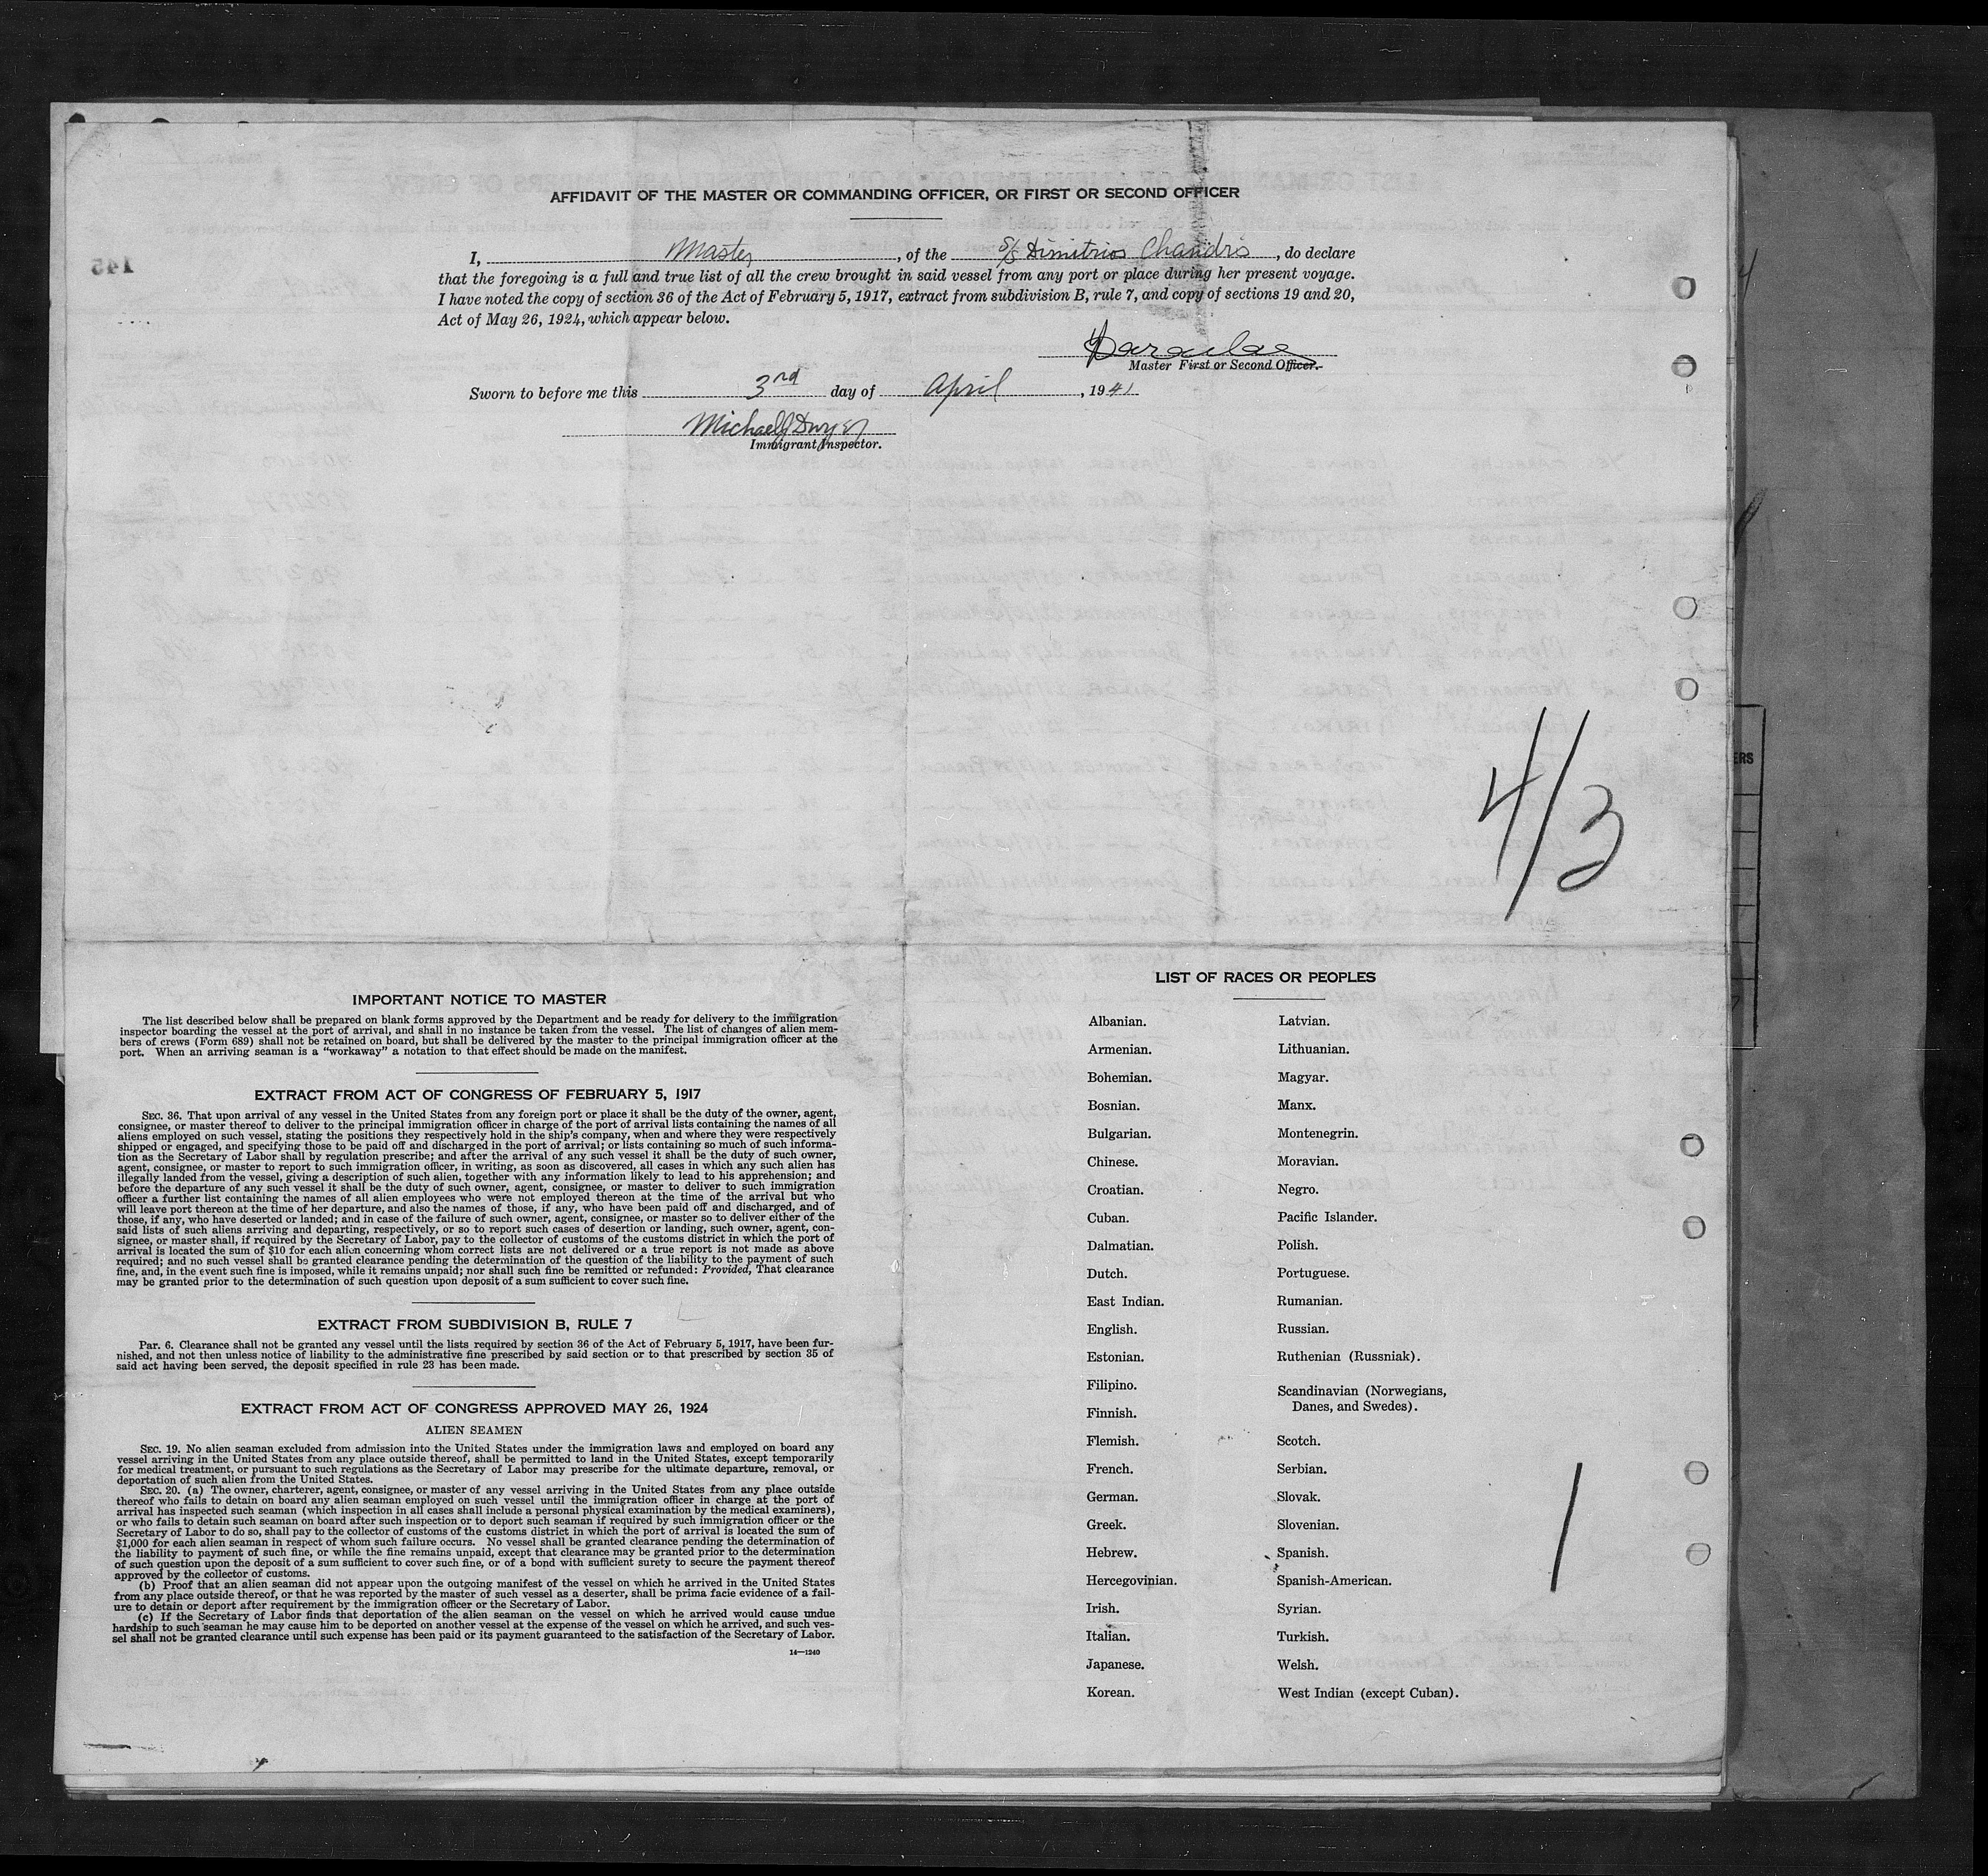 AFFIDAVIT OF THE MASTER OR COMMANDING OFFICER, OR FIRST OR SECOND OFFICER
I, Master, of the S/S Dimitrios Chandris, do declare
that the foregoing is a full and true list of all the crew brought in said vessel from any port or place during her present voyage.
I have noted the copy of section 36 of the Act of February 5, 1917, extract from subdivision B, rule 7, and copy of sections 19 and 20,
Act of May 26, 1924, which appear below.
Master First or Second Officer.
Sworn to before me this 3rd day of April, 1941
Michael J Dwyer
Immigrant Inspector.
145
4/3
ERS
IMPORTANT NOTICE TO MASTER
The list described below shall be prepared on blank forms approved by the Department and be ready for delivery to the immigration
inspector boarding the vessel at the port of arrival, and shall in no instance be taken from the vessel. The list of changes of alien mem-
bers of crews (Form 689) shall not be retained on board, but shall be delivered by the master to the principal immigration officer at the
port. When an arriving seaman is a "workaway" a notation to that effect should be made on the manifest.
EXTRACT FROM ACT OF CONGRESS OF FEBRUARY 5, 1917
SEC. 36. That upon arrival of any vessel in the United States from any foreign port or place it shall be the duty of the owner, agent,
consignee, or master thereof to deliver to the principal immigration officer in charge of the port of arrival lists containing the names of all
aliens employed on such vessel, stating the positions they respectively hold in the ship's company, when and where they were respectively
shipped or engaged, and specifying those to be paid off and discharged in the port of arrival; or lists containing so much of such informa-
tion as the Secretary of Labor shall by regulation prescribe; and after the arrival of any such vessel it shall be the duty of such owner,
agent, consignee, or master to report to such immigration officer, in writing, as soon as discovered, all cases in which any such alien has
illegally landed from the vessel, giving a description of such alien, together with any information likely to lead to his apprehension; and
before the departure of any such vessel it shall be the duty of such owner, agent, consignee, or master to deliver to such immigration
officer a further list containing the names of all alien employees who were not employed thereon at the time of the arrival but who
will leave port thereon at the time of her departure, and also the names of those, if any, who have been paid off and discharged, and of
those, if any, who have deserted or landed; and in case of the failure of such owner, agent, consignee, or master so to deliver either of the
said lists of such aliens arriving and departing, respectively, or so to report such cases of desertion or landing, such owner, agent, con-
signee, or master shall, if required by the Secretary of Labor, pay to the collector of customs of the customs district in which the port of
arrival is located the sum of $10 for each alien concerning whom correct lists are not delivered or a true report is not made as above
required; and no such vessel shall be granted clearance pending the determination of the question of the liability to the payment of such
fine, and, in the event such fine is imposed, while it remains unpaid; nor shall such fine be remitted or refunded: Provided, That clearance
may be granted prior to the determination of such question upon deposit of a sum sufficient to cover such fine.
EXTRACT FROM SUBDIVISION B, RULE 7
Par. 6. Clearance shall not be granted any vessel until the lists required by section 36 of the Act of February 5, 1917, have been fur-
nished, and not then unless notice of liability to the administrative fine prescribed by said section or to that prescribed by section 35 of
said act having been served, the deposit specified in rule 23 has been made.
EXTRACT FROM ACT OF CONGRESS APPROVED MAY 26, 1924
ALIEN SEAMEN
SEC. 19. No alien seaman excluded from admission into the United States under the immigration laws and employed on board any
vessel arriving in the United States from any place outside thereof, shall be permitted to land in the United States, except temporarily
for medical treatment, or pursuant to such regulations as the Secretary of Labor may prescribe for the ultimate departure, removal, or
deportation of such alien from the United States.
SEC. 20. (a) The owner, charterer, agent, consignee, or master of any vessel arriving in the United States from any place outside
thereof who fails to detain on board any alien seaman employed on such vessel until the immigration officer in charge at the port of
arrival has inspected such seaman (which inspection in all cases shall include a personal physical examination by the medical examiners),
or who fails to detain such seaman on board after such inspection or to deport such seaman if required by such immigration officer or the
Secretary of Labor to do so, shall pay to the collector of customs of the customs district in which the port of arrival is located the sum of
$1,000 for each alien seaman in respect of whom such failure occurs. No vessel shall be granted clearance pending the determination of
the liability to payment of such fine, or while the fine remains unpaid, except that clearance may be granted prior to the determination
of such question upon the deposit of a sum sufficient to cover such fine, or of a bond with sufficient surety to secure the payment thereof
approved by the collector of customs.
(b) Proof that an alien seaman did not appear upon the outgoing manifest of the vessel on which he arrived in the United States
from any place outside thereof, or that he was reported by the master of such vessel as a deserter, shall be prima facie evidence of a fail-
ure to detain or deport after requirement by the immigration officer or the Secretary of Labor.
(c) If the Secretary of Labor finds that deportation of the alien seaman on the vessel on which he arrived would cause undue
hardship to such seaman he may cause him to be deported on another vessel at the expense of the vessel on which he arrived, and such ves-
sel shall not be granted clearance until such expense has been paid or its payment guaranteed to the satisfaction of the Secretary of Labor.
14—1240
LIST OF RACES OR PEOPLES
Albanian.
Armenian.
Bohemian.
Bosnian.
Bulgarian.
Chinese.
Croatian.
Cuban.
Dalmatian.
Dutch.
East Indian.
English.
Estonian.
Filipino.
Finnish.
Flemish.
French.
German.
Greek.
Hebrew.
Hercegovinian.
Irish.
Italian.
Japanese.
Korean.
Latvian.
Lithuanian.
Magyar.
Manx.
Montenegrin.
Moravian.
Negro.
Pacific Islander.
Polish.
Portuguese.
Rumanian.
Russian.
Ruthenian (Russniak).
Scandinavian (Norwegians,
Danes, and Swedes).
Scotch.
Serbian.
Slovak.
Slovenian.
Spanish.
Spanish-American.
Syrian.
Turkish.
Welsh.
West Indian (except Cuban).